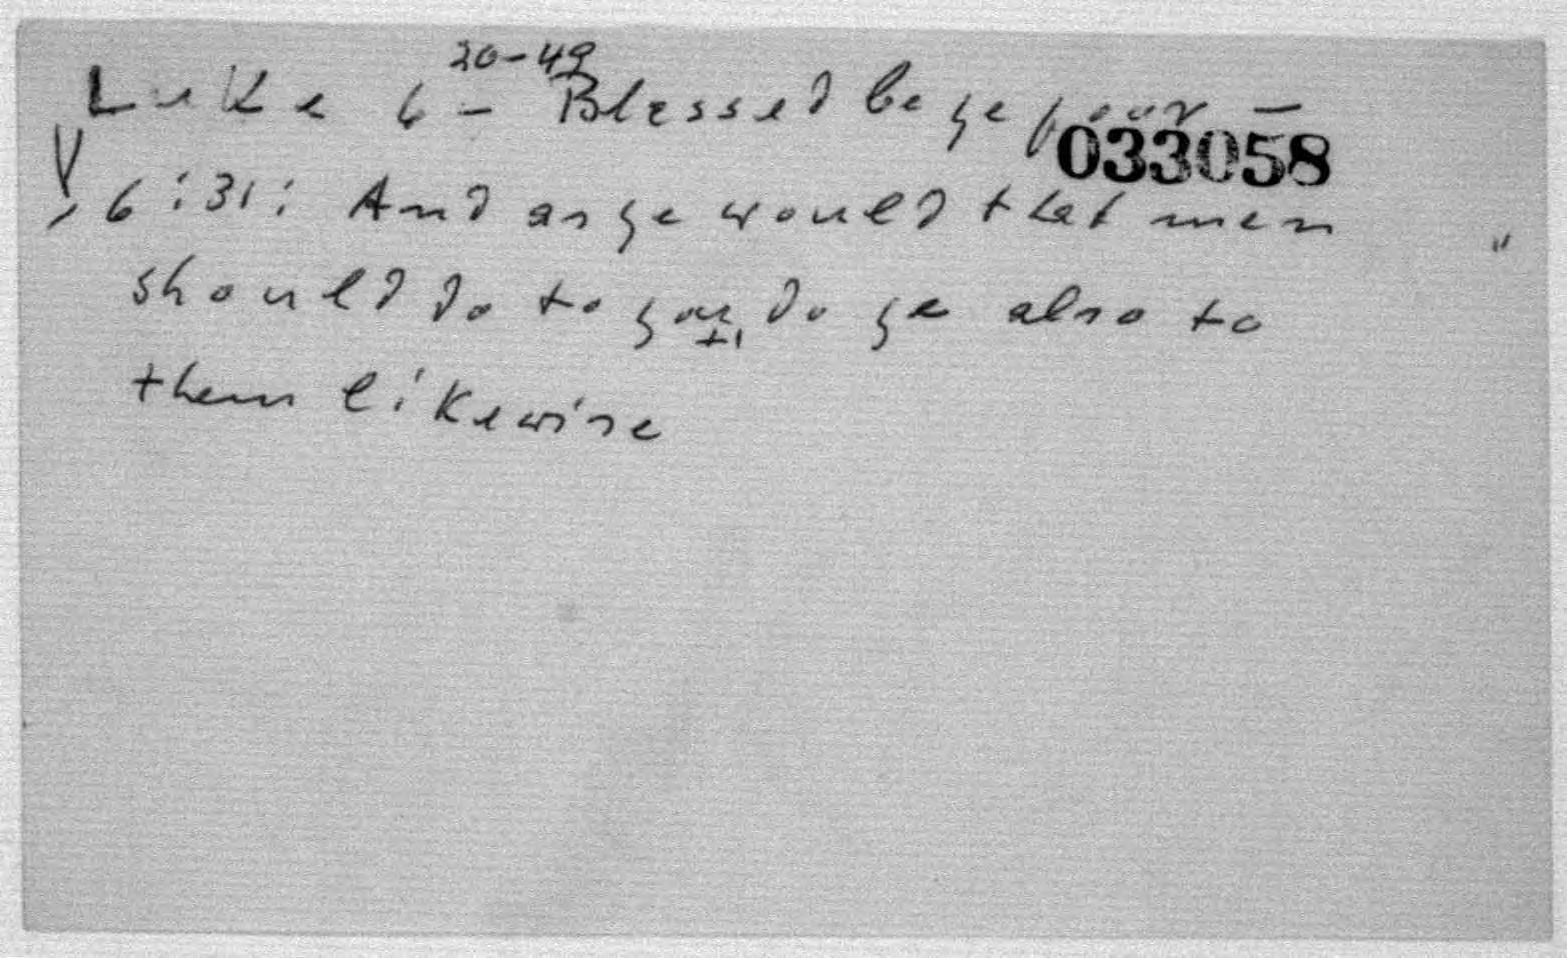 20-49
Luke 6 - Blessed be ye poor -
033058
6:31: And as ye would that men
should do to you, do ye also to
them likewise